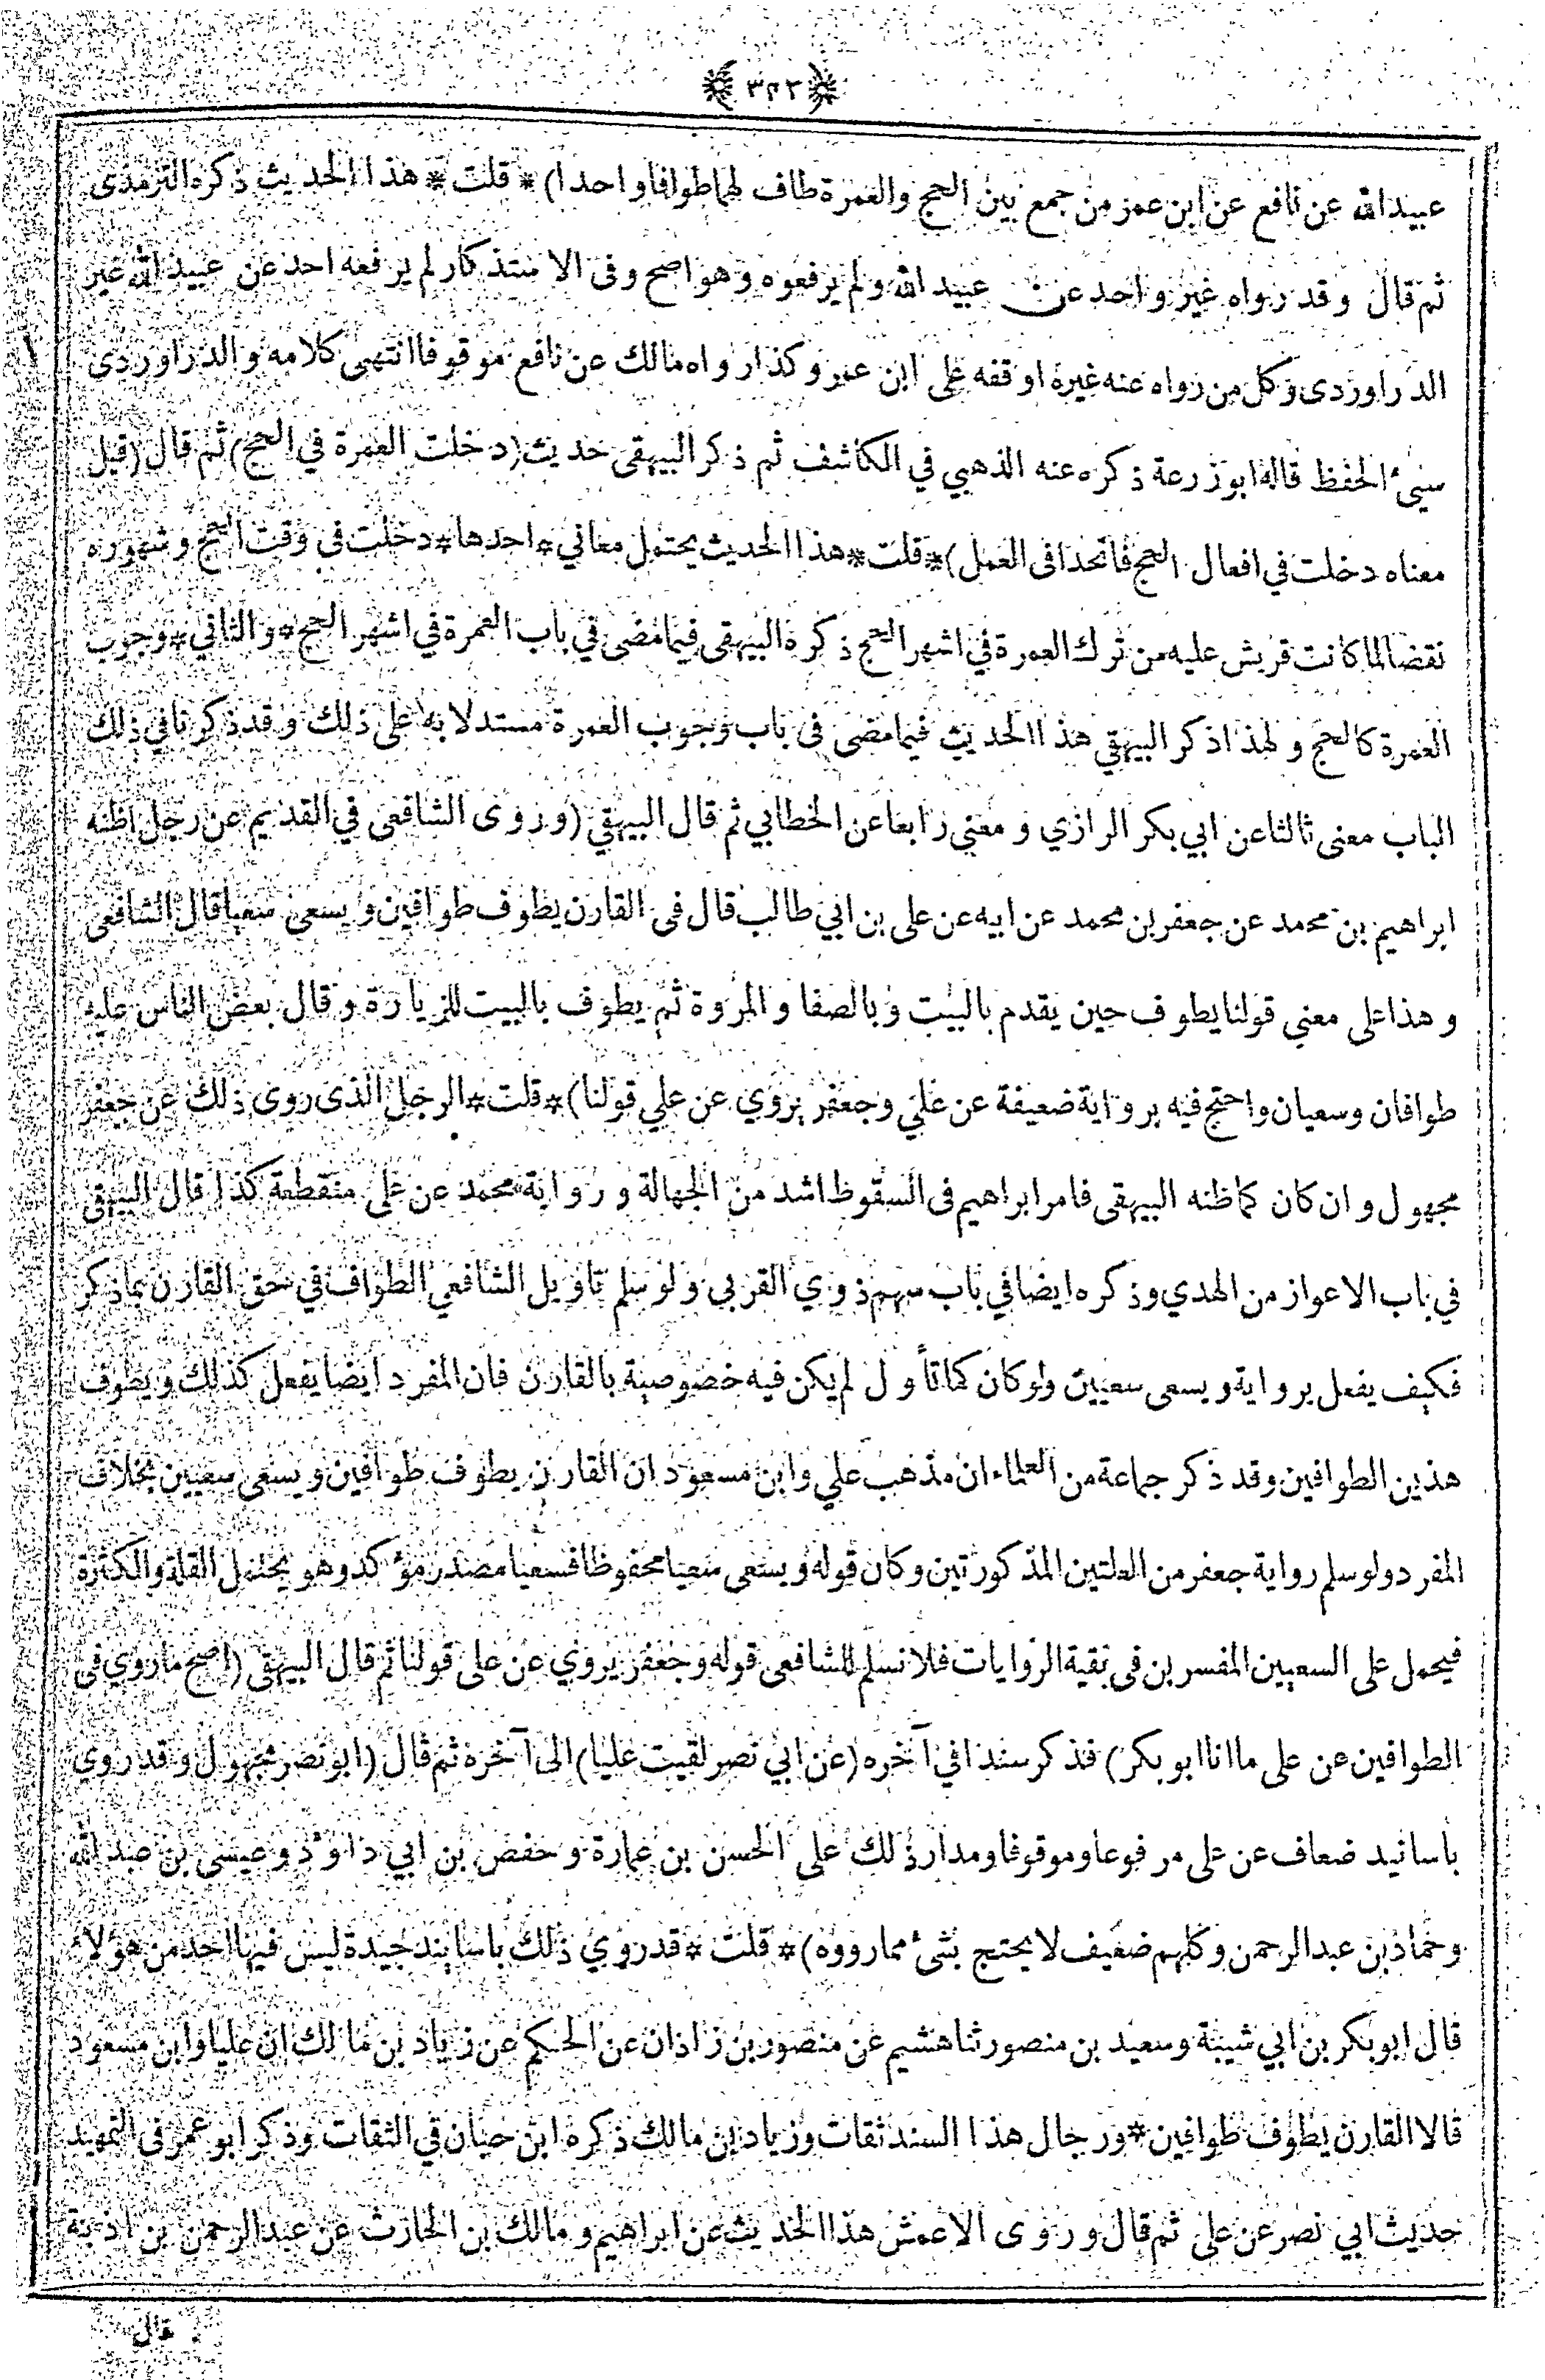 ﴿ ٣٢٣ ﴾
عبيدالله عن نافع عن ابن عمر من جمع بين الحج والعمرة طاف لهما طوافا واحدا) * قلت * هذا الحديث ذكره الترمذى
ثم قال وقد رواه غير واحد عن عبيد الله ولم يرفعوه وهو اصح وفى الاستذكار لم يرفعه احد عن عبيد الله غير
الدراوردى وكل من رواه عنه غيره اوقفه على ابن عمر وكذا رواه مالك عن نافع موقوفا انتهى كلامه والدراوردى
سيئ الحفظ قاله ابوزرعة ذكره عنه الذهبي في الكاشف ثم ذكر البيهقى حديث (دخلت العمرة في الحج) ثم قال (قيل
معناه دخلت في افعال الحج فاتحدا فى العمل) * قلت * هذا الحديث يحتمل معاني * احدها * دخلت في وقت الحج وشهوره
نقضا لما كانت قريش عليه من ترك العمرة في اشهر الحج ذكره البيهقى فيما مضى في باب العمرة في اشهر الحج * والثاني * وجوب
العمرة كالحج ولهذا ذكر البيهقي هذا الحديث فيما مضى فى باب وجوب العمرة مستدلا به على ذلك وقد ذكرنا في ذلك
الباب معنى ثالثا عن ابي بكر الرازي ومعنى رابعا عن الخطابي ثم قال البيهقي (وروى الشافعى في القديم عن رجل اظنه
ابراهيم بن محمد عن جعفر بن محمد عن ابيه عن على بن ابي طالب قال فى القارن يطوف طوافين ويسعى سعيا قال الشافعى
وهذا على معنى قولنا يطوف حين يقدم بالبيت وبالصفا والمروة ثم يطوف بالبيت للزيارة وقال بعض الناس عليه
طوافان وسعيان واحتج فيه برواية ضعيفة عن علي وجعفر يروي عن علي قولنا) * قلت * الرجل الذى روى ذلك عن جعفر
مجهول وان كان كما ظنه البيهقى فامر ابراهيم فى السقوط اشد من الجهالة ورواية محمد عن على منقطعة كذا قال البيهقى
في باب الاعواز من الهدي وذكره ايضا في باب سهم ذوي القربى ولو سلم تاويل الشافعي الطواف في حق القارن بما ذكر
فكيف يفعل برواية ويسعى سعيين ولو كان كما تأول لم يكن فيه خصوصية بالقارن فان المفرد ايضا يفعل كذلك ويطوف
هذين الطوافين وقد ذكر جماعة من العلماء ان مذهب علي وابن مسعود ان القارن يطوف طوافين ويسعى سعيين بخلاف
المفرد ولو سلم رواية جعفر من العلتين المذكورتين وكان قوله ويسعى سعيا محفوظا فسعيا مصدر مؤكد وهو يحتمل القلة والكثرة
فيحمل على السعيين المفسرين فى بقية الروايات فلا نسلم للشافعى قوله وجعفر يروي عن على قولنا ثم قال البيهقى (اصح ما روي فى
الطوافين عن على ما انا ابو بكر) فذكر سندا في آخره (عن ابي نصر لقيت عليا) الى آخره ثم قال (ابو نصر مجهول وقد روي
بأسانيد ضعاف عن على مرفوعا وموقوفا ومدار ذلك على الحسن بن عمارة وحفص بن ابي داؤد وعيسى بن عبد الله
وحماد بن عبد الرحمن وكلهم ضعيف لا يحتج بشئ مما رووه) * قلت * قد روي ذلك باسانيد جيدة ليس فيها احد من هؤلاء
قال ابو بكر بن ابي شيبة وسعيد بن منصور ثنا هشيم عن منصور بن زاذان عن الحكم عن زياد بن مالك ان عليا وابن مسعود
قالا القارن يطوف طوافين * ورجال هذا السند ثقات وزياد بن مالك ذكره ابن حبان في الثقات وذكر ابو عمر فى التمهيد
حديث ابي نصر عن على ثم قال وروى الاعمش هذا الحديث عن ابراهيم ومالك بن الحارث عن عبد الرحمن بن اذينة
قال